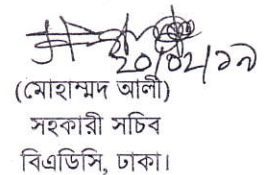 ২০/০২/১৯
(মোহাম্মদ আলী)
সহকারী সচিব
বিএডিসি, ঢাকা।